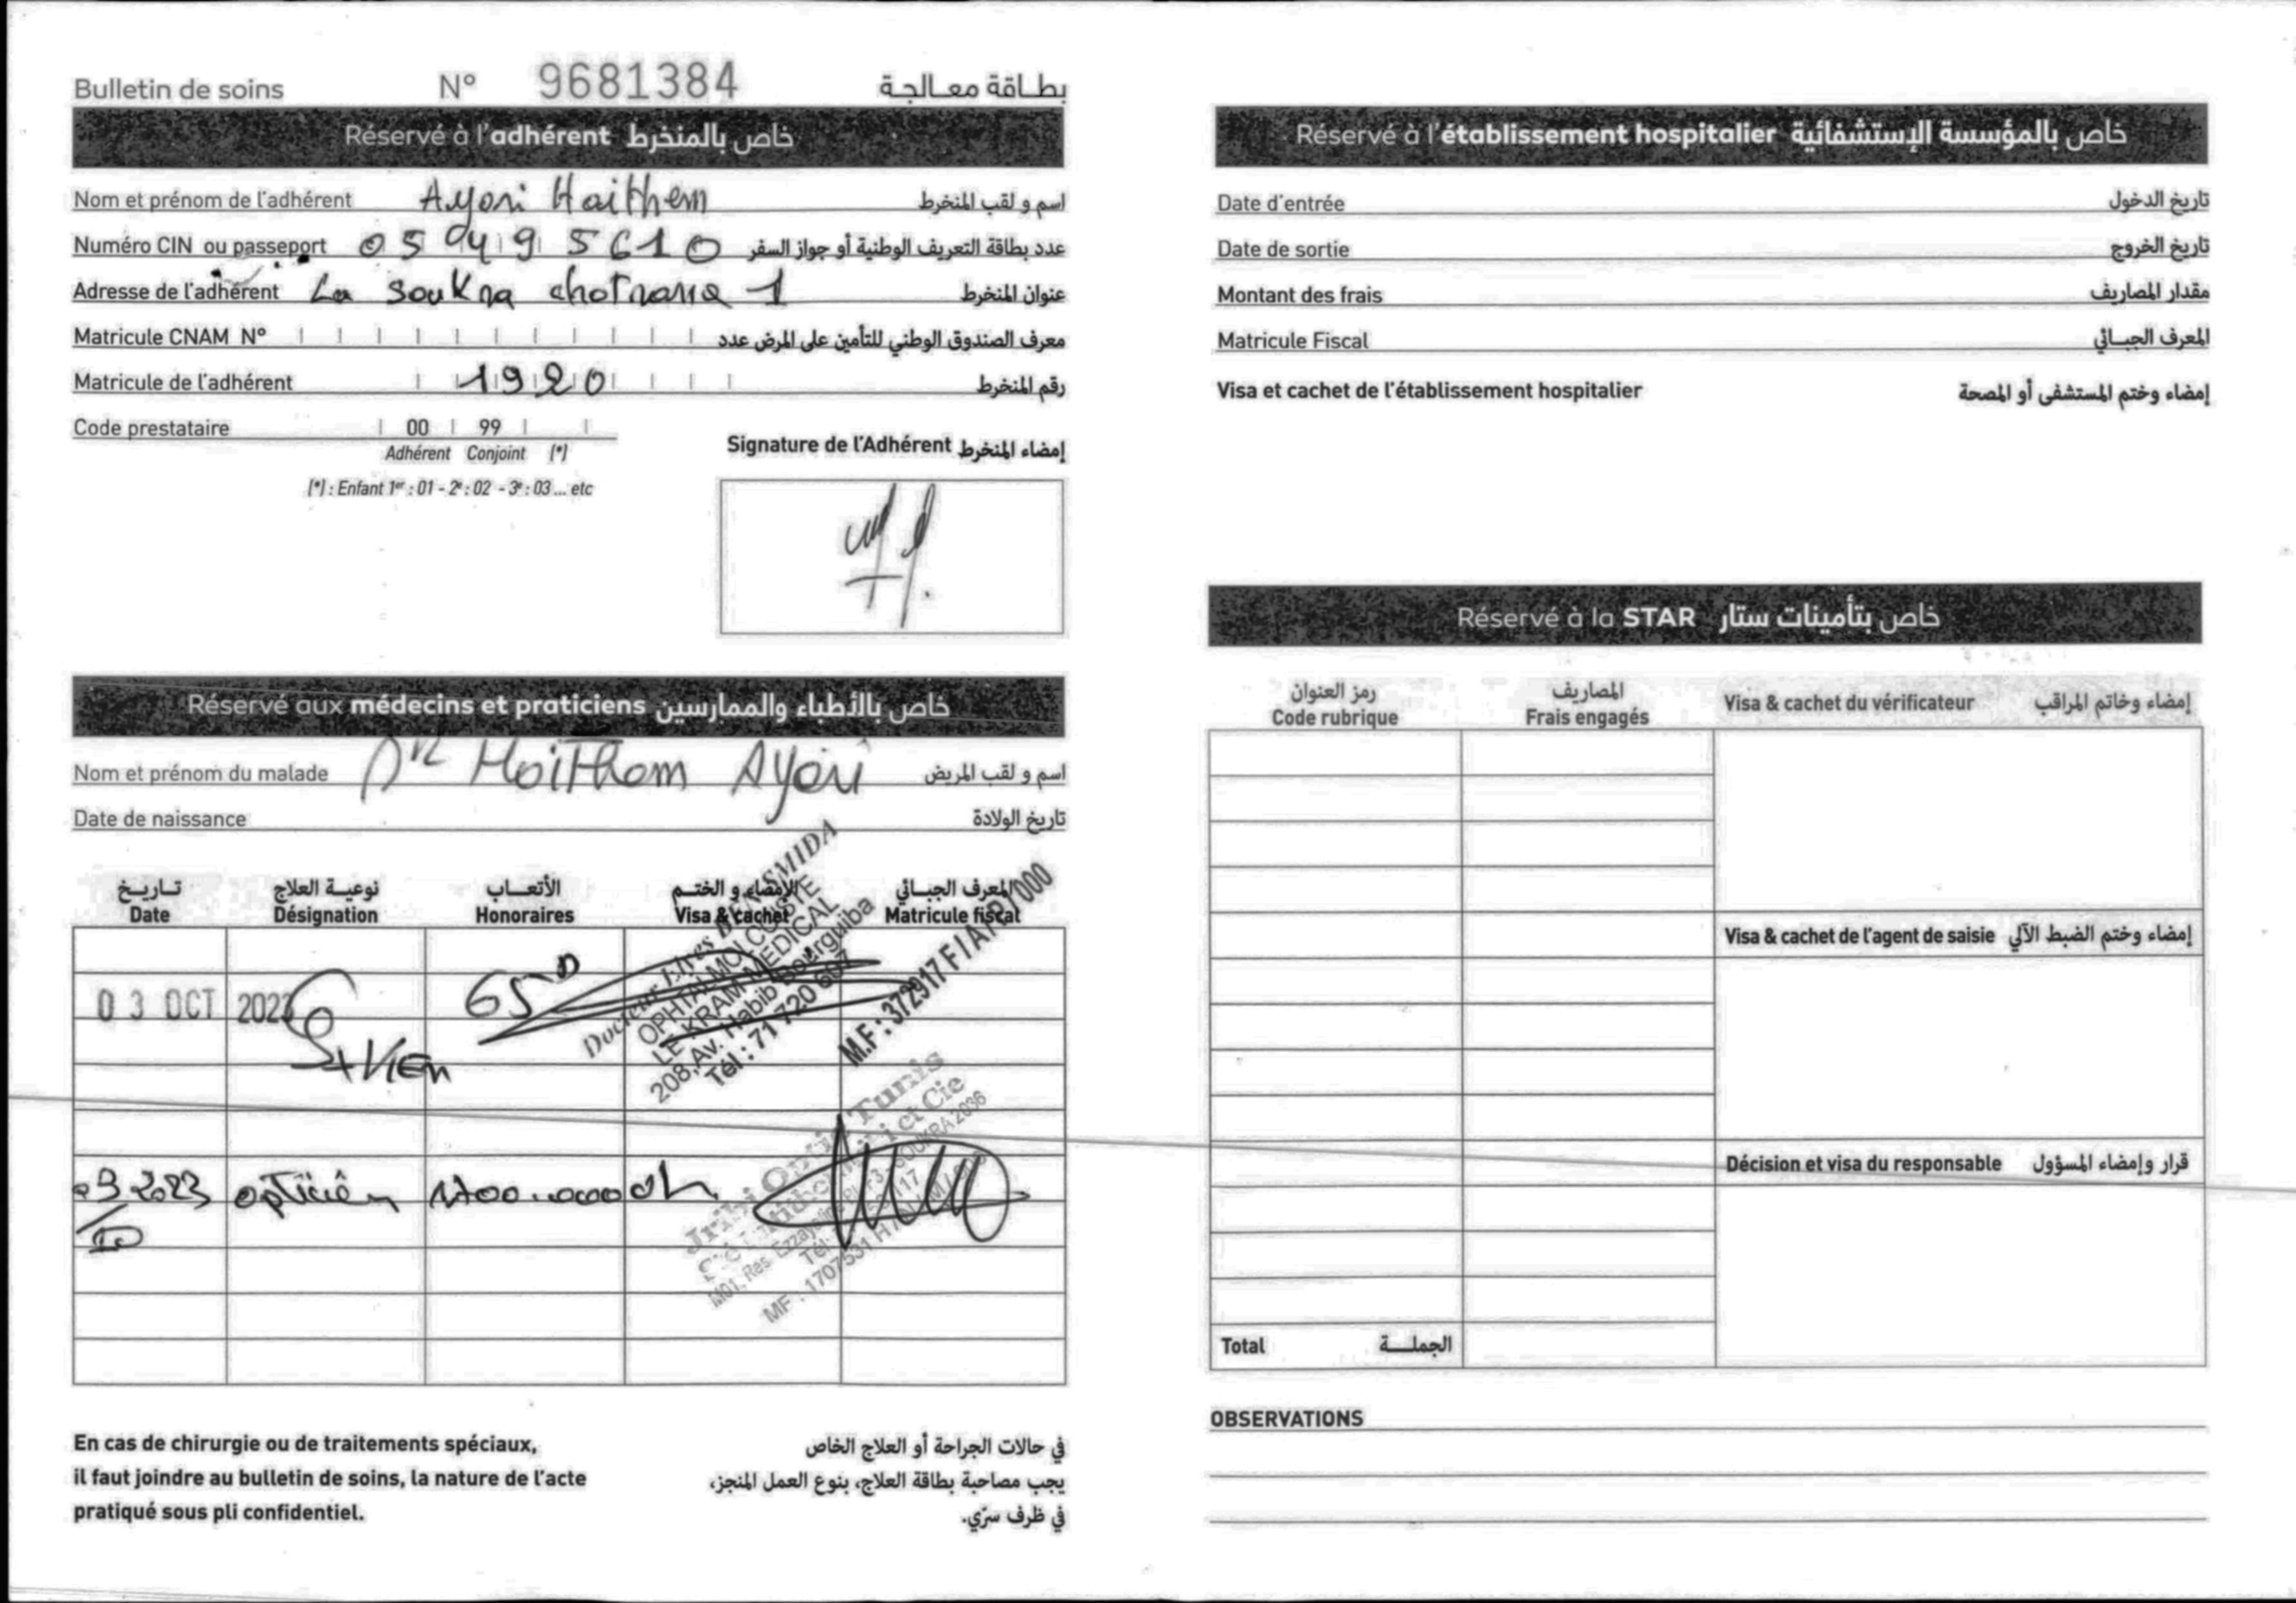 Bulletin de soins N° 9681384 بطاقة معالجة
Réservé à l'adhérent خاص بالمنخرط
Nom et prénom de l'adhérent Ayari Haithem اسم و لقب المنخرط
Numéro CIN ou passeport 05495610 عدد بطاقة التعريف الوطنية أو جواز السفر
Adresse de l'adhérent La Soukra chotrana 1 عنوان المنخرط
Matricule CNAM N° معرف الصندوق الوطني للتأمين على المرض عدد
Matricule de l'adhérent 1920 رقم المنخرط
Code prestataire 00 99
Adhérent Conjoint (*)
(*) : Enfant 1er : 01 - 2e : 02 - 3e : 03 ... etc
Signature de l'Adhérent إمضاء المنخرط
Réservé aux médecins et praticiens خاص بالأطباء والممارسين
Nom et prénom du malade Mr Haithem Ayari اسم و لقب المريض
Date de naissance تاريخ الولادة
تاريخ نوعية العلاج الأتعاب الإمضاء و الختم المعرف الجبائي
Date Désignation Honoraires Visa & cachet Matricule fiscal
03 OCT 2023 65D
Docteur BEN SMIDA
OPHTALMOLOGISTE
LE KRAM MEDICAL
208, Av. Habib Bourguiba
Tél : 71 720 607
M.F : 372917 F/A/P/000
03 2023 opticien
10
Optic Tunis
et Cie
M01, Rés. Ezzay SOUKRA 2036
Tél
MF : 1707531 H
En cas de chirurgie ou de traitements spéciaux,
il faut joindre au bulletin de soins, la nature de l'acte
pratiqué sous pli confidentiel.
في حالات الجراحة أو العلاج الخاص
يجب مصاحبة بطاقة العلاج، بنوع العمل المنجز،
في ظرف سرّي.
Réservé à l'établissement hospitalier خاص بالمؤسسة الإستشفائية
Date d'entrée تاريخ الدخول
Date de sortie تاريخ الخروج
Montant des frais مقدار المصاريف
Matricule Fiscal المعرف الجبائي
Visa et cachet de l'établissement hospitalier إمضاء وختم المستشفى أو المصحة
Réservé à la STAR خاص بتأمينات ستار
رمز العنوان المصاريف
Code rubrique Frais engagés Visa & cachet du vérificateur إمضاء وخاتم المراقب
Visa & cachet de l'agent de saisie إمضاء وختم الضبط الآلي
Décision et visa du responsable قرار وإمضاء المسؤول
Total الجملة
OBSERVATIONS